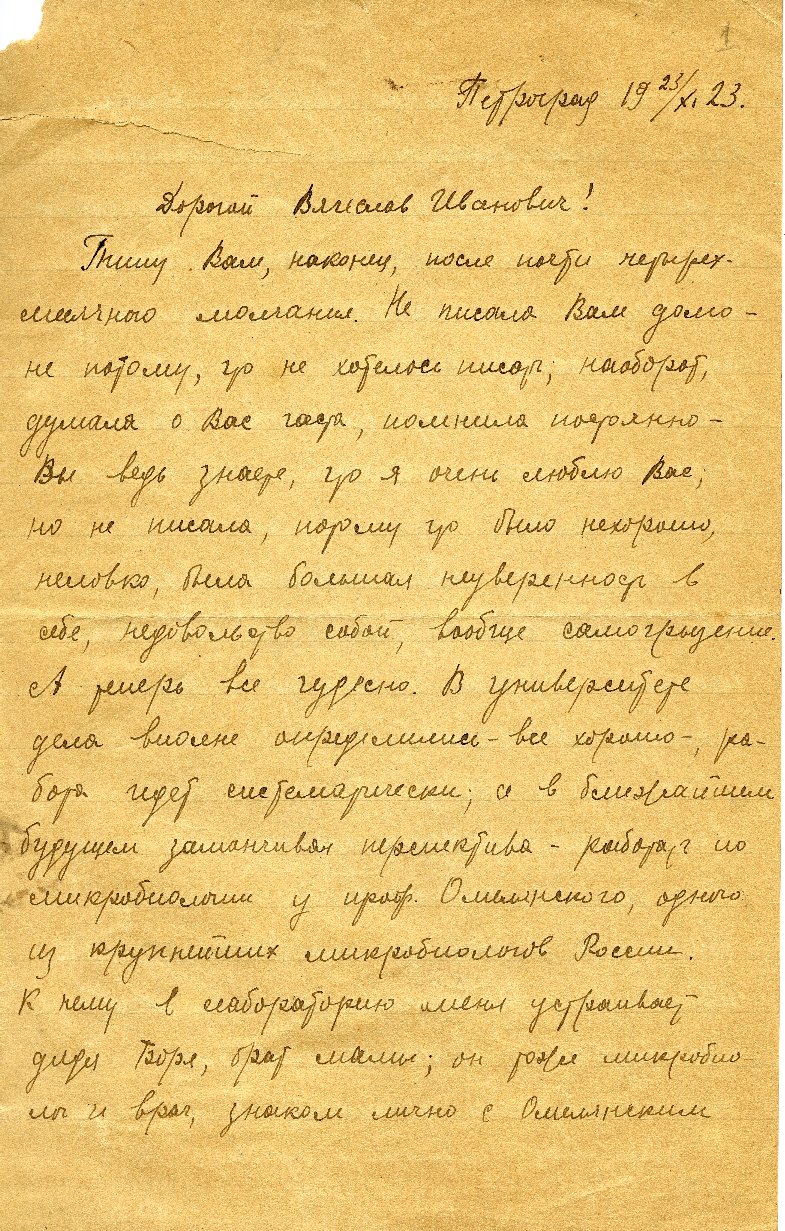 1
Петроград 19 23/XI 23.
Дорогой Вячеслав Иванович!
Пишу Вам, наконец, после почти четырех-
месячного молчания. Не писала Вам долго –
не потому, что не хотелось писать; наоборот,
думала о Вас часто, помнила постоянно –
Вы ведь знаете, что я очень люблю Вас;
но не писала, потому что было нехорошо,
неловко, была большая неуверенность в
себе, недовольство собой, вообще самогрызение.
А теперь все чудесно. В университете
дела вполне определились – все хорошо –, ра-
бота идет систематически; а в ближайшем
будущем заманчивая перспектива – работать по
микробиологии у проф. Омелянского, одного
из крупнейших микробиологов России.
К нему в лабораторию меня устраивает
дядя Боря, брат мамы; он тоже микробио-
лог и врач, знаком лично с Омелянским